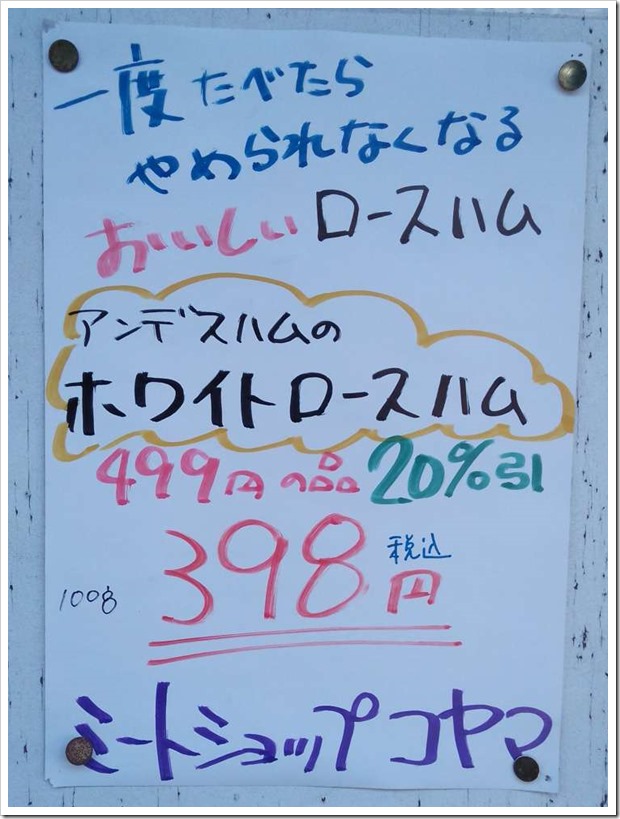 一度たべたら
やめられなくなる
おいしいロースハム
アンデスハムの
ホワイトロースハム
499円の品20%引
100g 398円 税込
ミートショップコヤマ